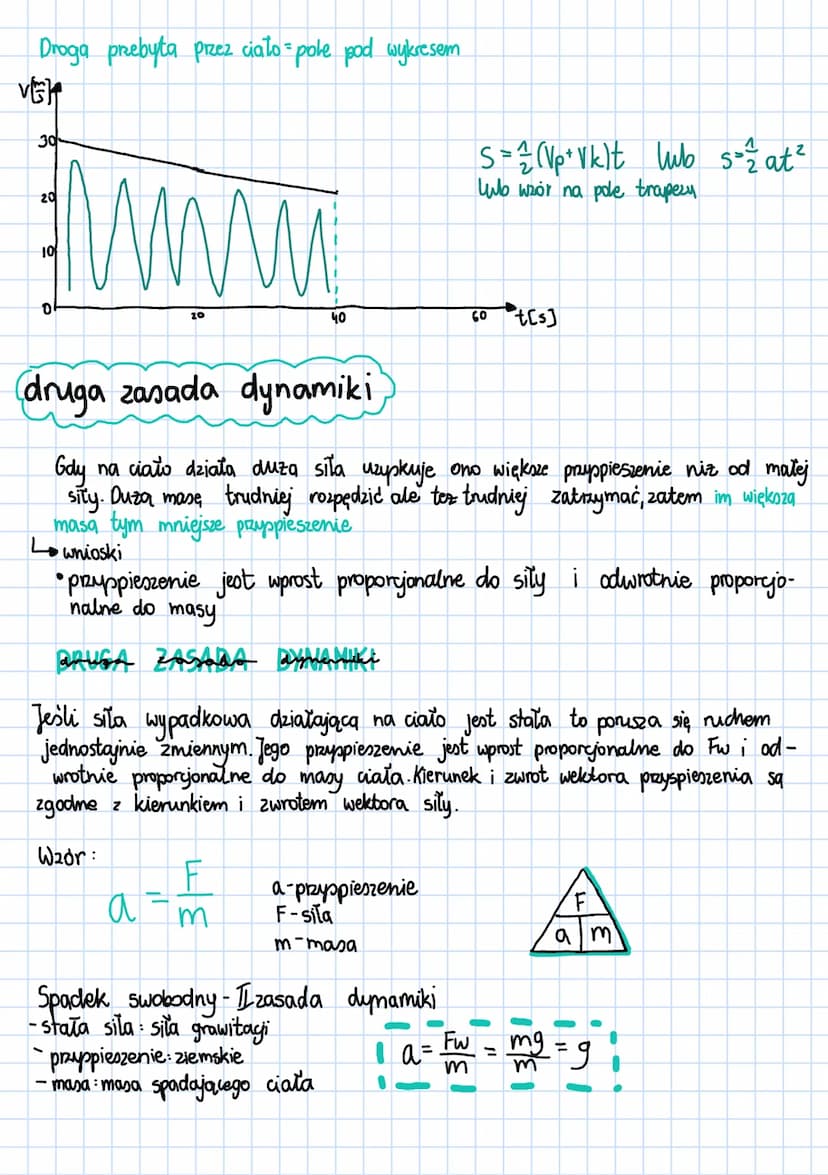 Droga przebyta przez ciało = pole pod wykresem
V[m/s]
30
20
10
0
20
40
60
t[s]
S = 1/2 (Vp + Vk)t lub s = 1/2 at²
lub wzór na pole trapezu
druga zasada dynamiki
Gdy na ciało działa duża siła uzyskuje ono większe przyspieszenie niż od małej
siły. Dużą masę trudniej rozpędzić ale też trudniej zatrzymać, zatem im większa
masa tym mniejsze przyspieszenie
↳ wnioski
• przyspieszenie jest wprost proporcjonalne do siły i odwrotnie proporcjo-
nalne do masy
DRUGA ZASADA DYNAMIKI
Jeśli siła wypadkowa działająca na ciało jest stała to porusza się ruchem
jednostajnie zmiennym. Jego przyspieszenie jest wprost proporcjonalne do Fw i od-
wrotnie proporcjonalne do masy ciała. Kierunek i zwrot wektora przyspieszenia są
zgodne z kierunkiem i zwrotem wektora siły.
Wzór:
a = F/m
a - przyspieszenie
F - siła
m - masa
F
a m
Spadek swobodny - II zasada dynamiki
- stała siła: siła grawitacji
- przyspieszenie: ziemskie
- masa: masa spadającego ciała
a = Fw/m = mg/m = g